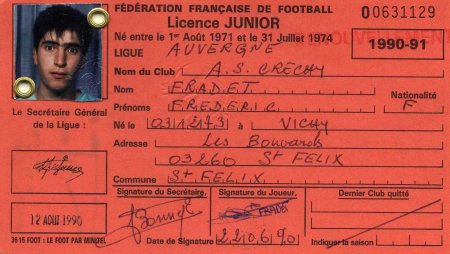 FÉDÉRATION FRANÇAISE DE FOOTBALL
00631129
Licence JUNIOR
RENOUVELLEMENT
Né entre le 1er Août 1971 et le 31 Juillet 1974
1990-91
LIGUE AUVERGNE
Nom du Club A.S. CRECHY
Nom FRADET
Nationalité
Prénoms FREDERIC F
Le Secrétaire Général
de la Ligue :
Né le 03/12/73 à VICHY
Adresse Les Bouvards
03260 St FELIX
Commune St FELIX
Signature du Secrétaire.
Signature du Joueur.
Dernier Club quitté
FRADET
12 AOUT 1990
Date de Signature 22 06 90
Indiquer la saison
3615 FOOT : LE FOOT PAR MINITEL